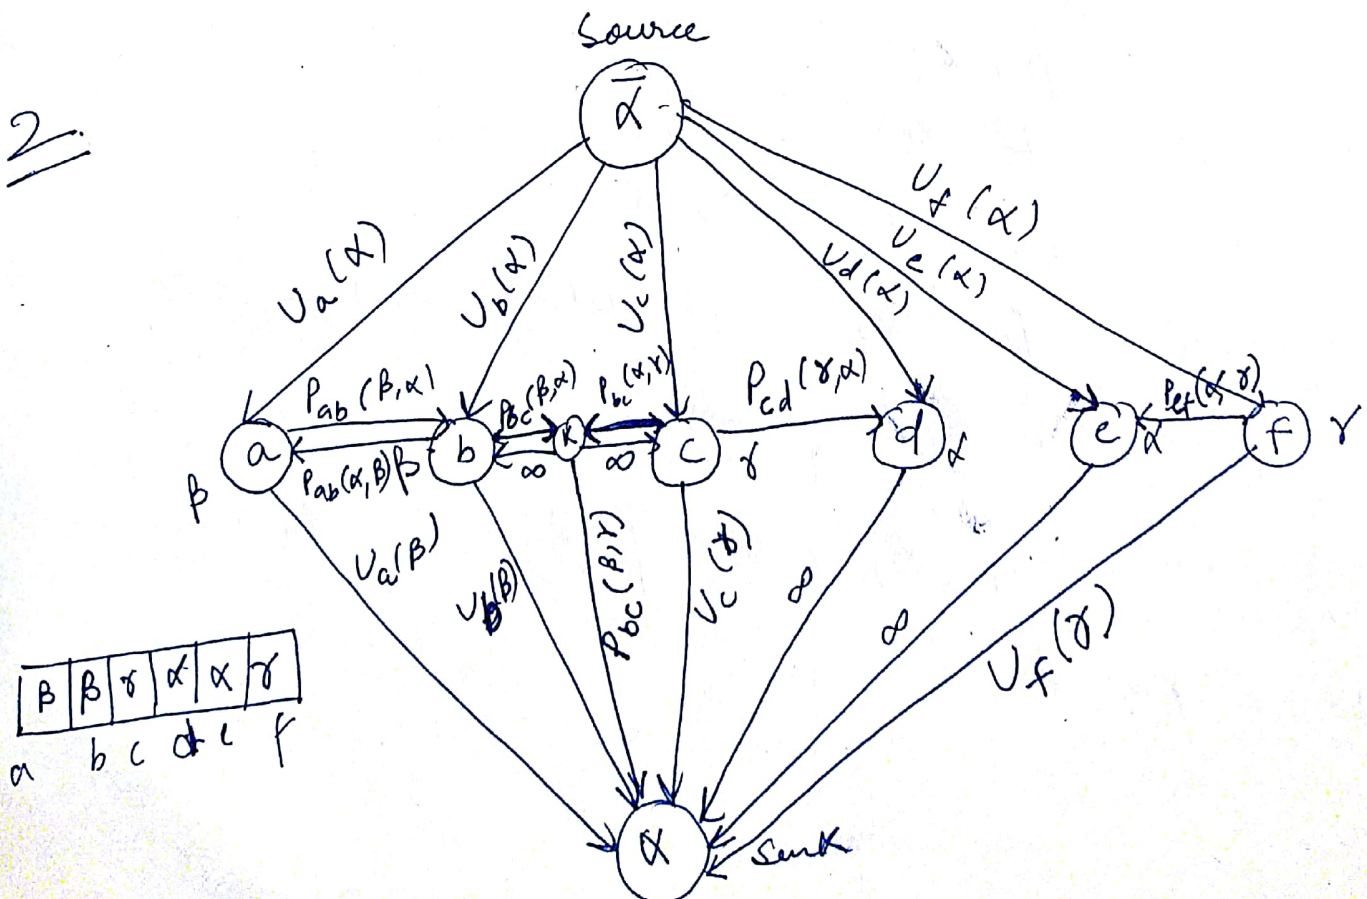 Source
2.
ᾱ
U_a(α)
U_b(α)
U_c(α)
U_d(α)
U_e(α)
U_f(α)
P_ab(β,α)
P_bc(β,α)
P_bc(α,γ)
P_cd(γ,α)
P_ef(α,γ)
a
b
K
c
d
e
f
β
P_ab(α,β)
β
∞
∞
γ
α
α
γ
U_a(β)
U_b(β)
P_bc(β,γ)
U_c(γ)
∞
∞
U_f(γ)
β β γ α α γ
a b c d e f
α
Sink